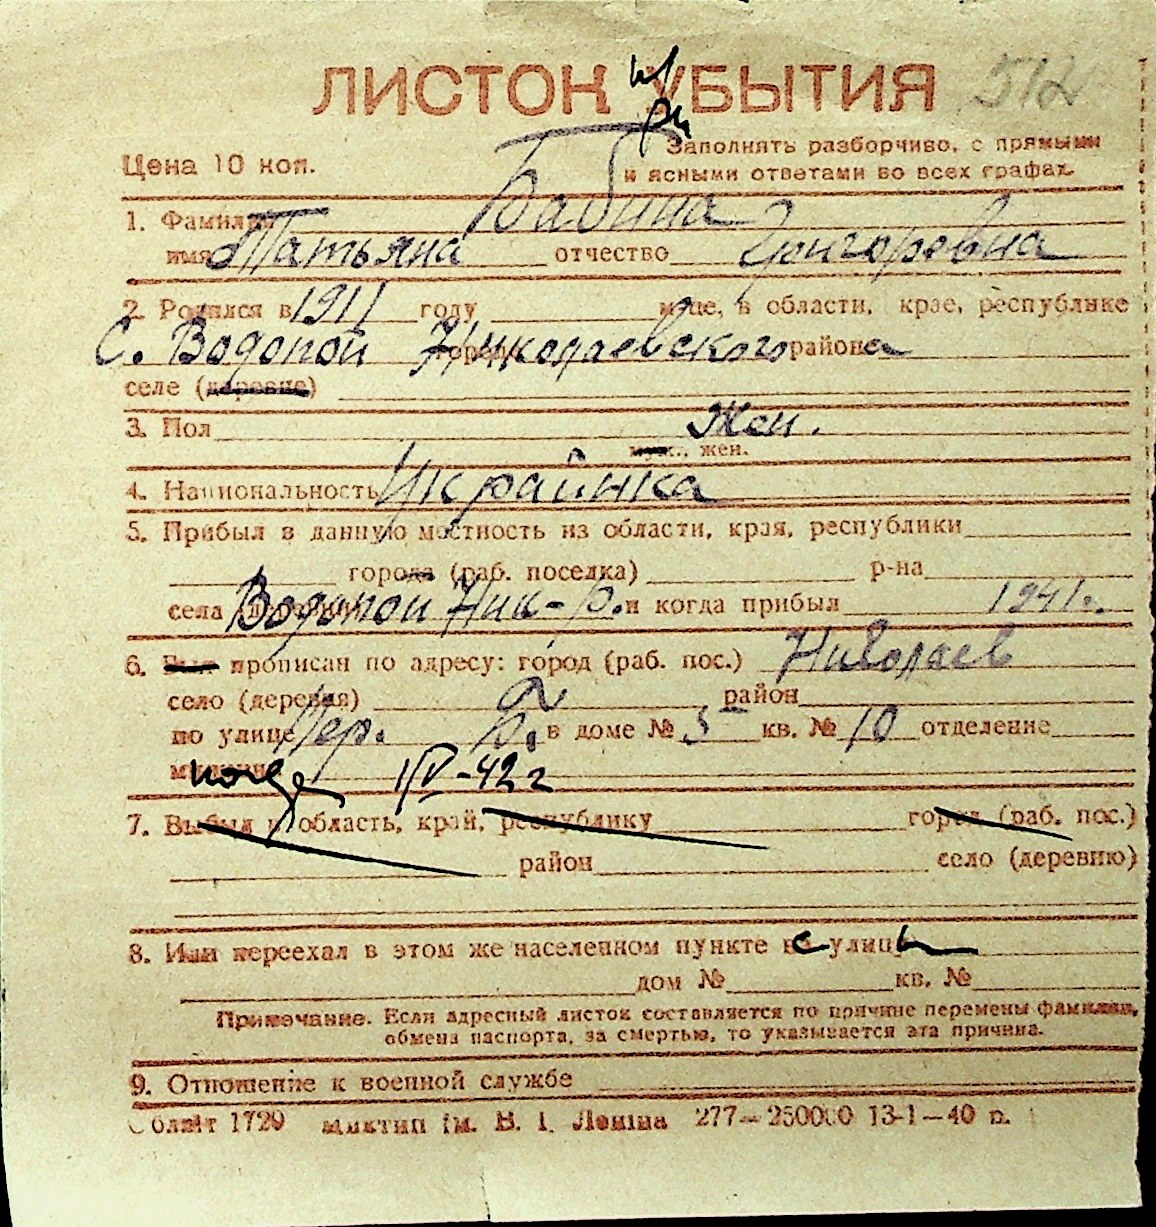 ЛИСТОК УБЫТИЯ 512
при
Цена 10 коп. Заполнять разборчиво, с прямыми
и ясными ответами во всех графах.
1. Фамилия Бабина
имя Татьяна отчество Григоровна
2. Родился в 1911 году м-це, в области, крае, республике
С. Водопой Николаевского района
селе (деревне)
3. Пол Жен.
муж., жен.
4. Национальность Украинка
5. Прибыл в данную местность из области, края, республики
города (раб. поселка) р-на
села Водопой Ник- р. и когда прибыл 1941 г.
6. Был прописан по адресу: город (раб. пос.) Николаев
село (деревня) район
по улице Пер. в доме № 5 кв. № 10 отделение
милиции когда IV-42 г
7. Выбыл в область, край, республику город (раб. пос.)
район село (деревню)
8. Или переехал в этом же населенном пункте с улицы
дом № кв. №
Примечание. Если адресный листок составляется по причине перемены фамилии,
обмена паспорта, за смертью, то указывается эта причина.
9. Отношение к военной службе
Обліт 1729 Миктип ім. В. І. Леніна 277—250000 13-1—40 р.